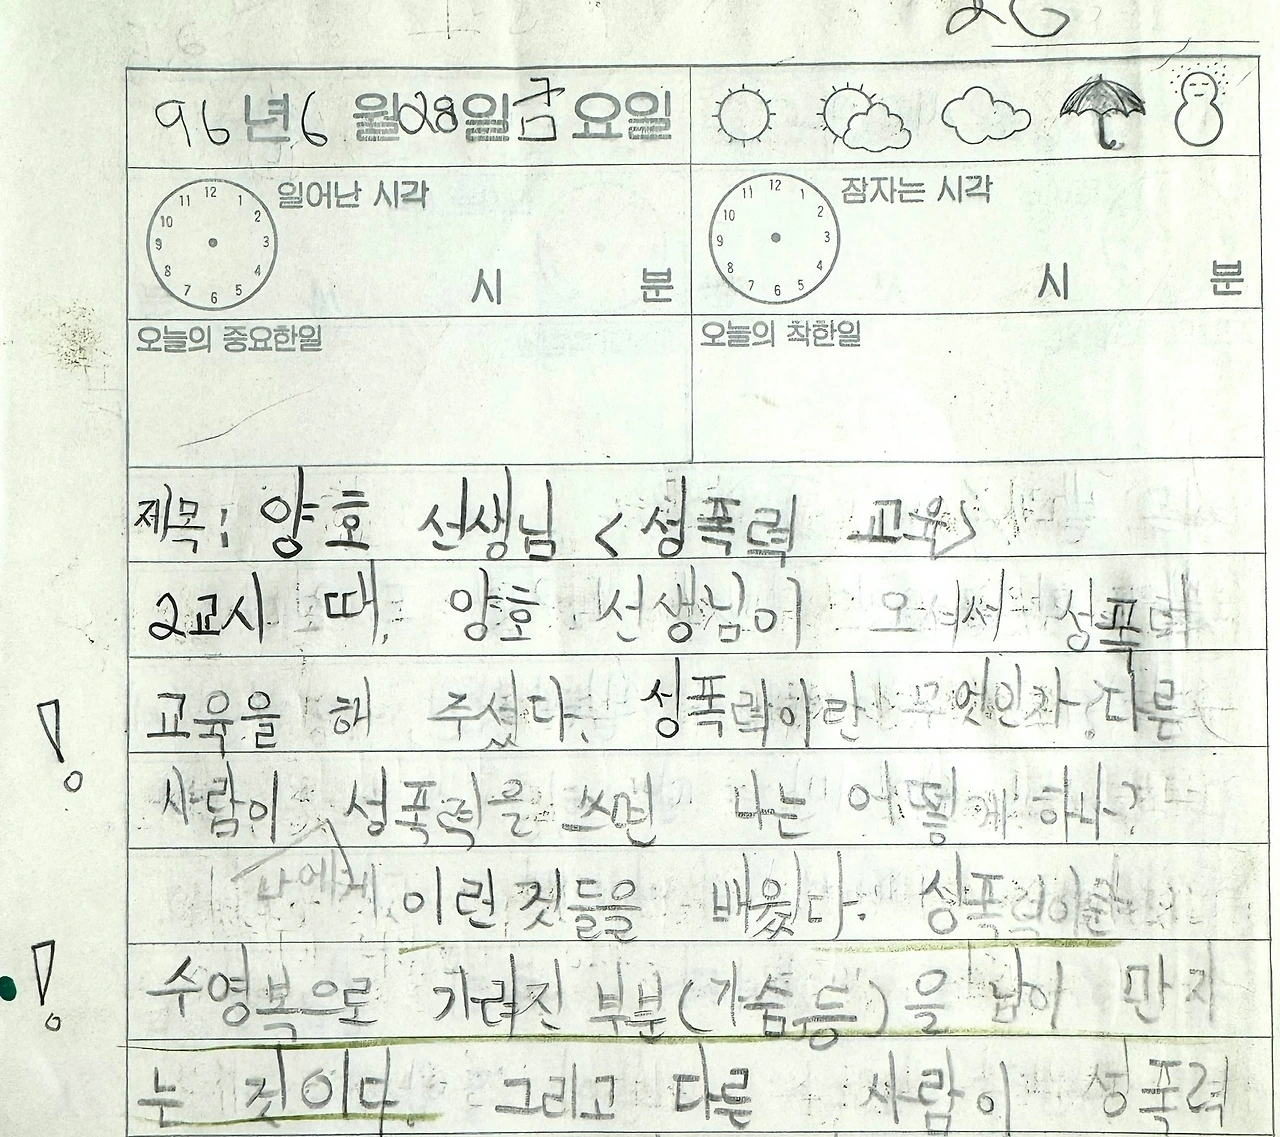 26
96년 6월 28일 금요일
일어난 시각
12 1 2 3 4 5 6 7 8 9 10 11
시 분
잠자는 시각
12 1 2 3 4 5 6 7 8 9 10 11
시 분
오늘의 중요한일
오늘의 착한일
제목: 양호 선생님 <성폭력 교육>
2교시 때, 양호 선생님이 오셔서 성폭력
교육을 해 주셨다. 성폭력이란 무엇인가? 다른
! 사람이 성폭력을 쓰면 나는 어떻게 하나?
나에게 이런 것들을 배웠다. 성폭력이란
! 수영복으로 가려진 부분(가슴 등)을 남이 만지
는 것이다. 그리고 다른 사람이 성폭력